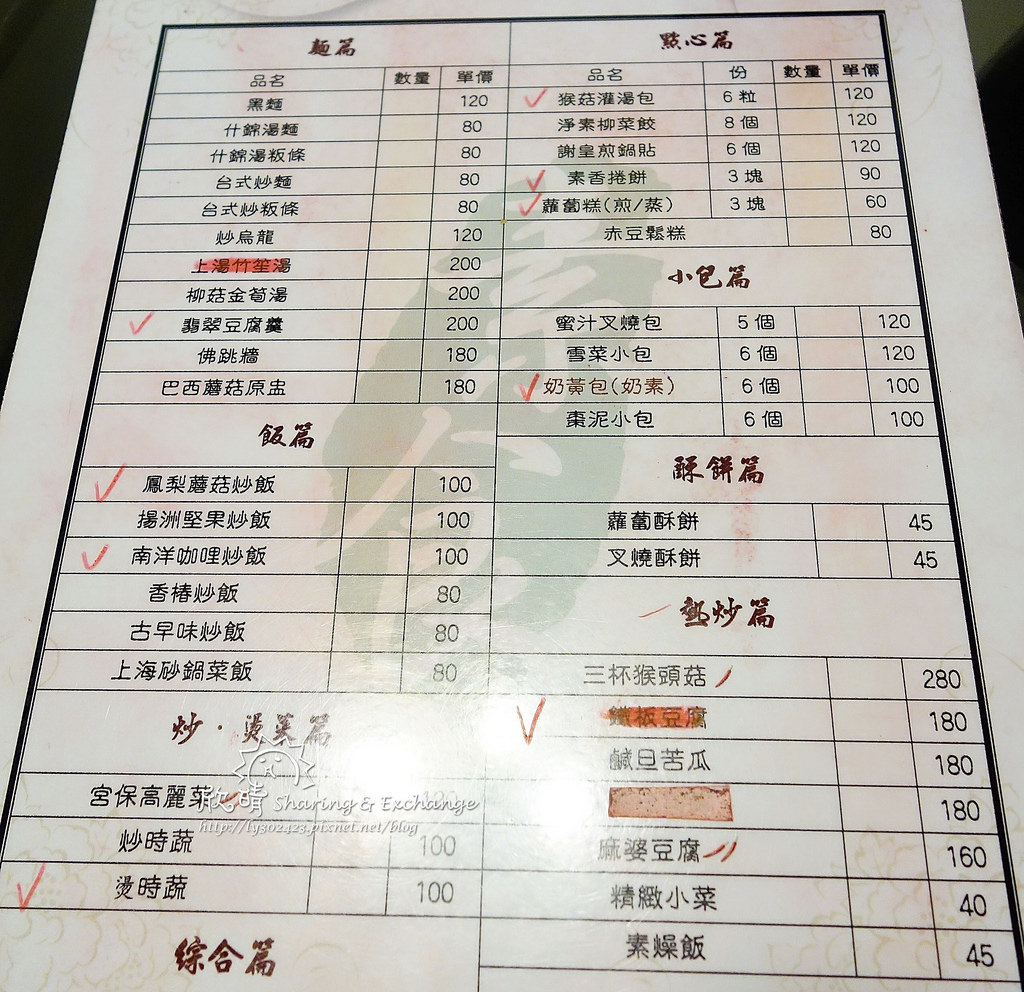 麵篇
品名 數量 單價
黑麵 120
什錦湯麵 80
什錦湯粄條 80
台式炒麵 80
台式炒粄條 80
炒烏龍 120
上湯竹笙湯 200
柳菇金菊湯 200
翡翠豆腐羹 200
佛跳牆 180
巴西蘑菇原盅 180
飯篇
鳳梨蘑菇炒飯 100
揚洲堅果炒飯 100
南洋咖哩炒飯 100
香椿炒飯 80
古早味炒飯 80
上海砂鍋菜飯 80
炒·燙菜篇
宮保高麗菜
炒時蔬 100
燙時蔬 100
綜合篇
點心篇
品名 份 數量 單價
猴菇灌湯包 6粒 120
淨素柳菜餃 8個 120
謝皇煎鍋貼 6個 120
素香捲餅 3塊 90
蘿蔔糕(煎/蒸) 3塊 60
赤豆鬆糕 80
小包篇
蜜汁叉燒包 5個 120
雪菜小包 6個 120
奶黃包(奶素) 6個 100
棗泥小包 6個 100
酥餅篇
蘿蔔酥餅 45
叉燒酥餅 45
熱炒篇
三杯猴頭菇 280
鐵板豆腐 180
鹹旦苦瓜 180
180
麻婆豆腐 160
精緻小菜 40
素燥飯 45
欣晴 Sharing & Exchange
http://lys02423.pixnet.net/blog